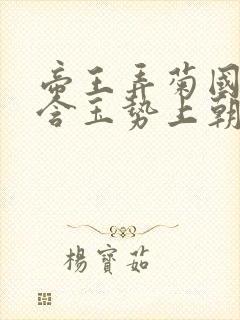 帝王弄菊國
含玉勢上朝
楊寶茹